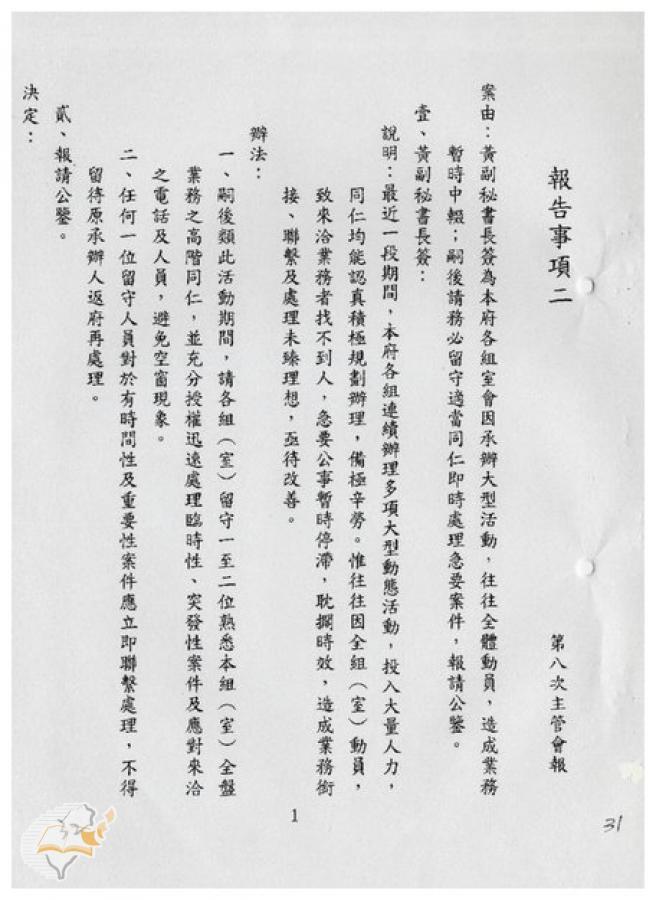 報告事項二
第八次主管會報
案由：黃副秘書長簽為本府各組室會因承辦大型活動，往往全體動員，造成業務
暫時中輟；嗣後請務必留守適當同仁即時處理急要案件，報請公鑒。
壹、黃副秘書長簽：
說明：最近一段期間，本府各組連續辦理多項大型動態活動，投入大量人力，
同仁均能認真積極規劃辦理，備極辛勞。惟往往因全組（室）動員，
致來洽業務者找不到人，急要公事暫時停滯，耽擱時效，造成業務銜
接、聯繫及處理未臻理想，亟待改善。
辦法：
一、嗣後類此活動期間，請各組（室）留守一至二位熟悉本組（室）全盤
業務之高階同仁，並充分授權迅速處理臨時性、突發性案件及應對來洽
之電話及人員，避免空窗現象。
二、任何一位留守人員對於有時間性及重要性案件應立即聯繫處理，不得
留待原承辦人返府再處理。
貳、報請公鑒。
決定：
1
31